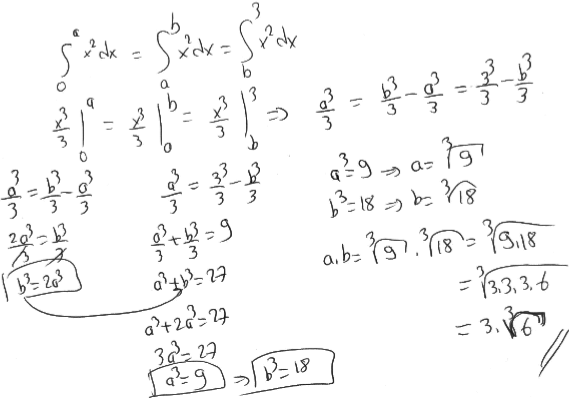 ∫₀ᵃ x²dx = ∫ₐᵇ x²dx = ∫_b³ x²dx
x³/3 |₀ᵃ = x³/3 |ₐᵇ = x³/3 |_b³ ⇒ a³/3 = b³/3 - a³/3 = 3³/3 - b³/3
a³/3 = b³/3 - a³/3
2a³/3 = b³/3
b³=2a³
a³/3 = 3³/3 - b³/3
a³/3 + b³/3 = 9
a³+b³=27
a³+2a³=27
3a³=27
a³=9 ⇒ b³=18
a³=9 ⇒ a=∛9
b³=18 ⇒ b=∛18
a.b=∛9.∛18=∛9.18
=∛3.3.3.6
=3.∛6